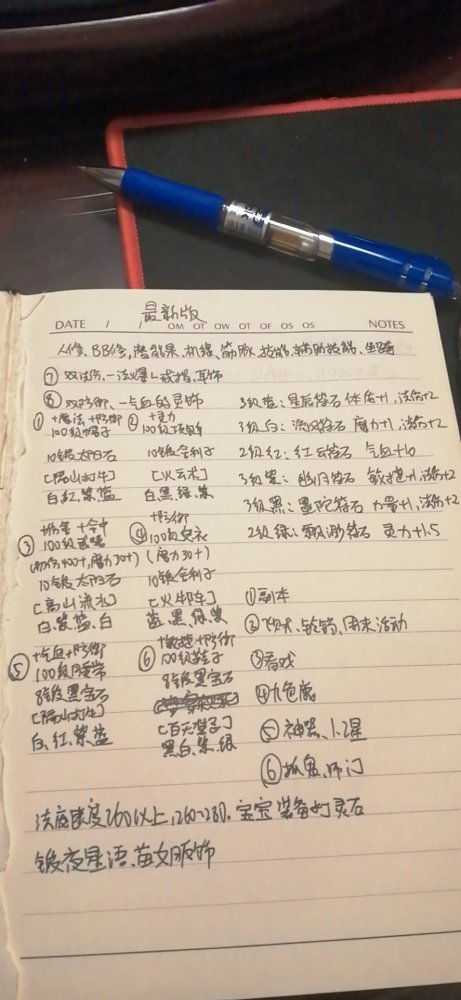 最新版
DATE / / OM OT OW OT OF OS OS NOTES
人修、BB修,潜能果,机缘、筋脉,技能,辅助技能、坐骑
⑦ 双法伤,一法爆 戒指,耳饰
⑧ 双防御、一气血的灵饰
① +魔法+防御
100级帽子
10锻太阳石
[隔山打牛]
白,红,紫,蓝
② +灵力
100级项链
10锻舍利子
[火云术]
白,黑,绿,紫
③ +伤害+命中
100级武器
(初伤400+,魔力30+)
10锻太阳石
[高山流水]
白、紫、蓝、白
④ +防御
100级女衣
(魔力30+)
10锻舍利子
[火牛车]
蓝、黑、绿、紫
⑤ +气血+防御
100级腰带
8锻黑宝石
[隔山打牛]
白、红、紫、蓝
⑥ +敏捷+防御
100级鞋子
8锻黑宝石
[百无禁忌]
黑,白、紫、绿
3级蓝:星辰符石 体质+1,法伤+2
3级白:符石 魔力+1,法伤+2
2级红:红云符石 气血+10
3级紫:符石 敏捷+1,法伤+2
3级黑:曼陀符石 力量+1,法伤+2
2级绿:飘渺符石 灵力+1.5
①副本
②飞贼、轮韵、周末活动
③看戏
④九色鹿
⑤神器、1.2星
⑥抓鬼、师门
法度速度260以上,260~280.宝宝装备灵石
锻夜星语、苗女服饰